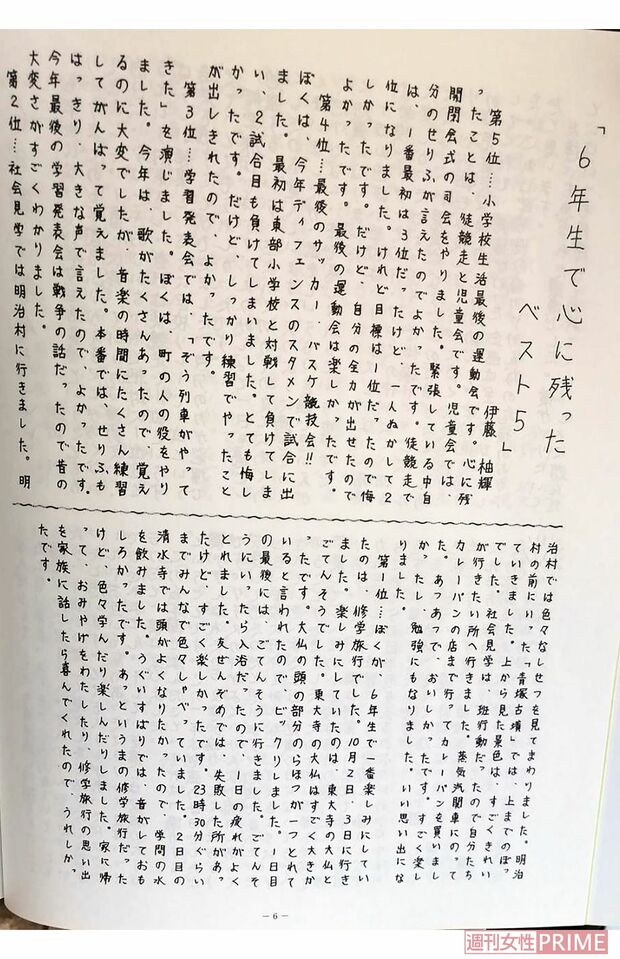 「６年生で心に残った
ベスト５」
伊藤　柚輝
第５位…小学校生活最後の運動会です。心に残
ったことは、徒競走と児童会です。児童会では、
開閉会式の司会をやりました。緊張している中自
分のせりふが言えたのでよかったです。徒競走で
は、１番最初は３位だったけど、一人ぬかして２
位になりました。けれど目標は１位だったので悔
しかったです。だけど、自分の全力が出せたので
よかったです。最後の運動会は楽しかったです。
第４位…最後のサッカー、バスケ競技会‼
ぼくは、今年ディフェンスのスタメンで試合に出
ました。最初は東部小学校と対戦して負けてしま
い、２試合目も負けてしまいました。とても悔し
かったです。だけど、しっかり練習でやったこと
が出しきれたので、よかったです。
第３位…学習発表会では、「ぞう列車がやって
きた」を演じました。ぼくは、町の人の役をやり
ました。今年は、歌がたくさんあったので、覚え
るのに大変でしたが、音楽の時間にたくさん練習
してがんばって覚えました。本番では、せりふも
はっきり、大きな声で言えたので、よかったです。
今年最後の学習発表会は戦争の話だったので昔の
大変さがすごくわかりました。
第２位…社会見学では明治村に行きました。明
治村では色々なしせつを見てまわりました。明治
村の前にいった「青塚古墳」では、上までのぼっ
ていきました。上から見た景色は、すごくきれい
でした。社会見学は、班行動だったので自分たち
が行きたい所へ行きました。蒸気汽関車にのって
カレーパンの店まで行ってカレーパンを買いまし
た。あつあつで、おいしかったです。すごく楽し
かったし、勉強にもなりました。いい思い出にな
りました。
第１位…ぼくが、６年生で一番楽しみにしてい
たのは、修学旅行でした。１０月２日、３日に行き
ました。楽しみにしていたのは、東大寺の大仏と
ごてんそうでした。東大寺の大仏はすごく大きか
ったです。大仏の頭の部分のらほつが一つとれて
いると言われたので、ビックリしました。１日目
の最後には、ごてんそうに行きました。ごてんそ
うにいったら入浴だったので、１日の疲れがよく
とれました。友ぜんぞめでは、失敗した所があっ
たけど、すごく楽しかったです。２３時３０分ぐらい
までみんなで色々しゃべっていました。２日目の
清水寺では頭がよくなりたかったので、学問の水
を飲みました。うぐいすばりでは、音がしておも
しろかったです。あっというまの修学旅行だった
けど、色々学んだり楽しんだりしました。家に帰
って、おみやげをわたしたり、修学旅行の思い出
を家族に話したら喜んでくれたので、うれしかっ
たです。
－６－
週刊女性PRIME